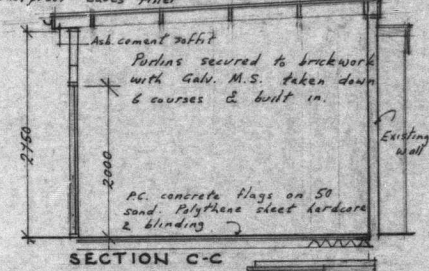 eaves filler
Asb. cement soffit
Purlins secured to brickwork
with Galv. M.S. taken down
6 courses & built in.
Existing
wall
2450
2000
P.C. concrete flags on 50
sand. Polythene sheet hardcore
& blinding
SECTION C-C